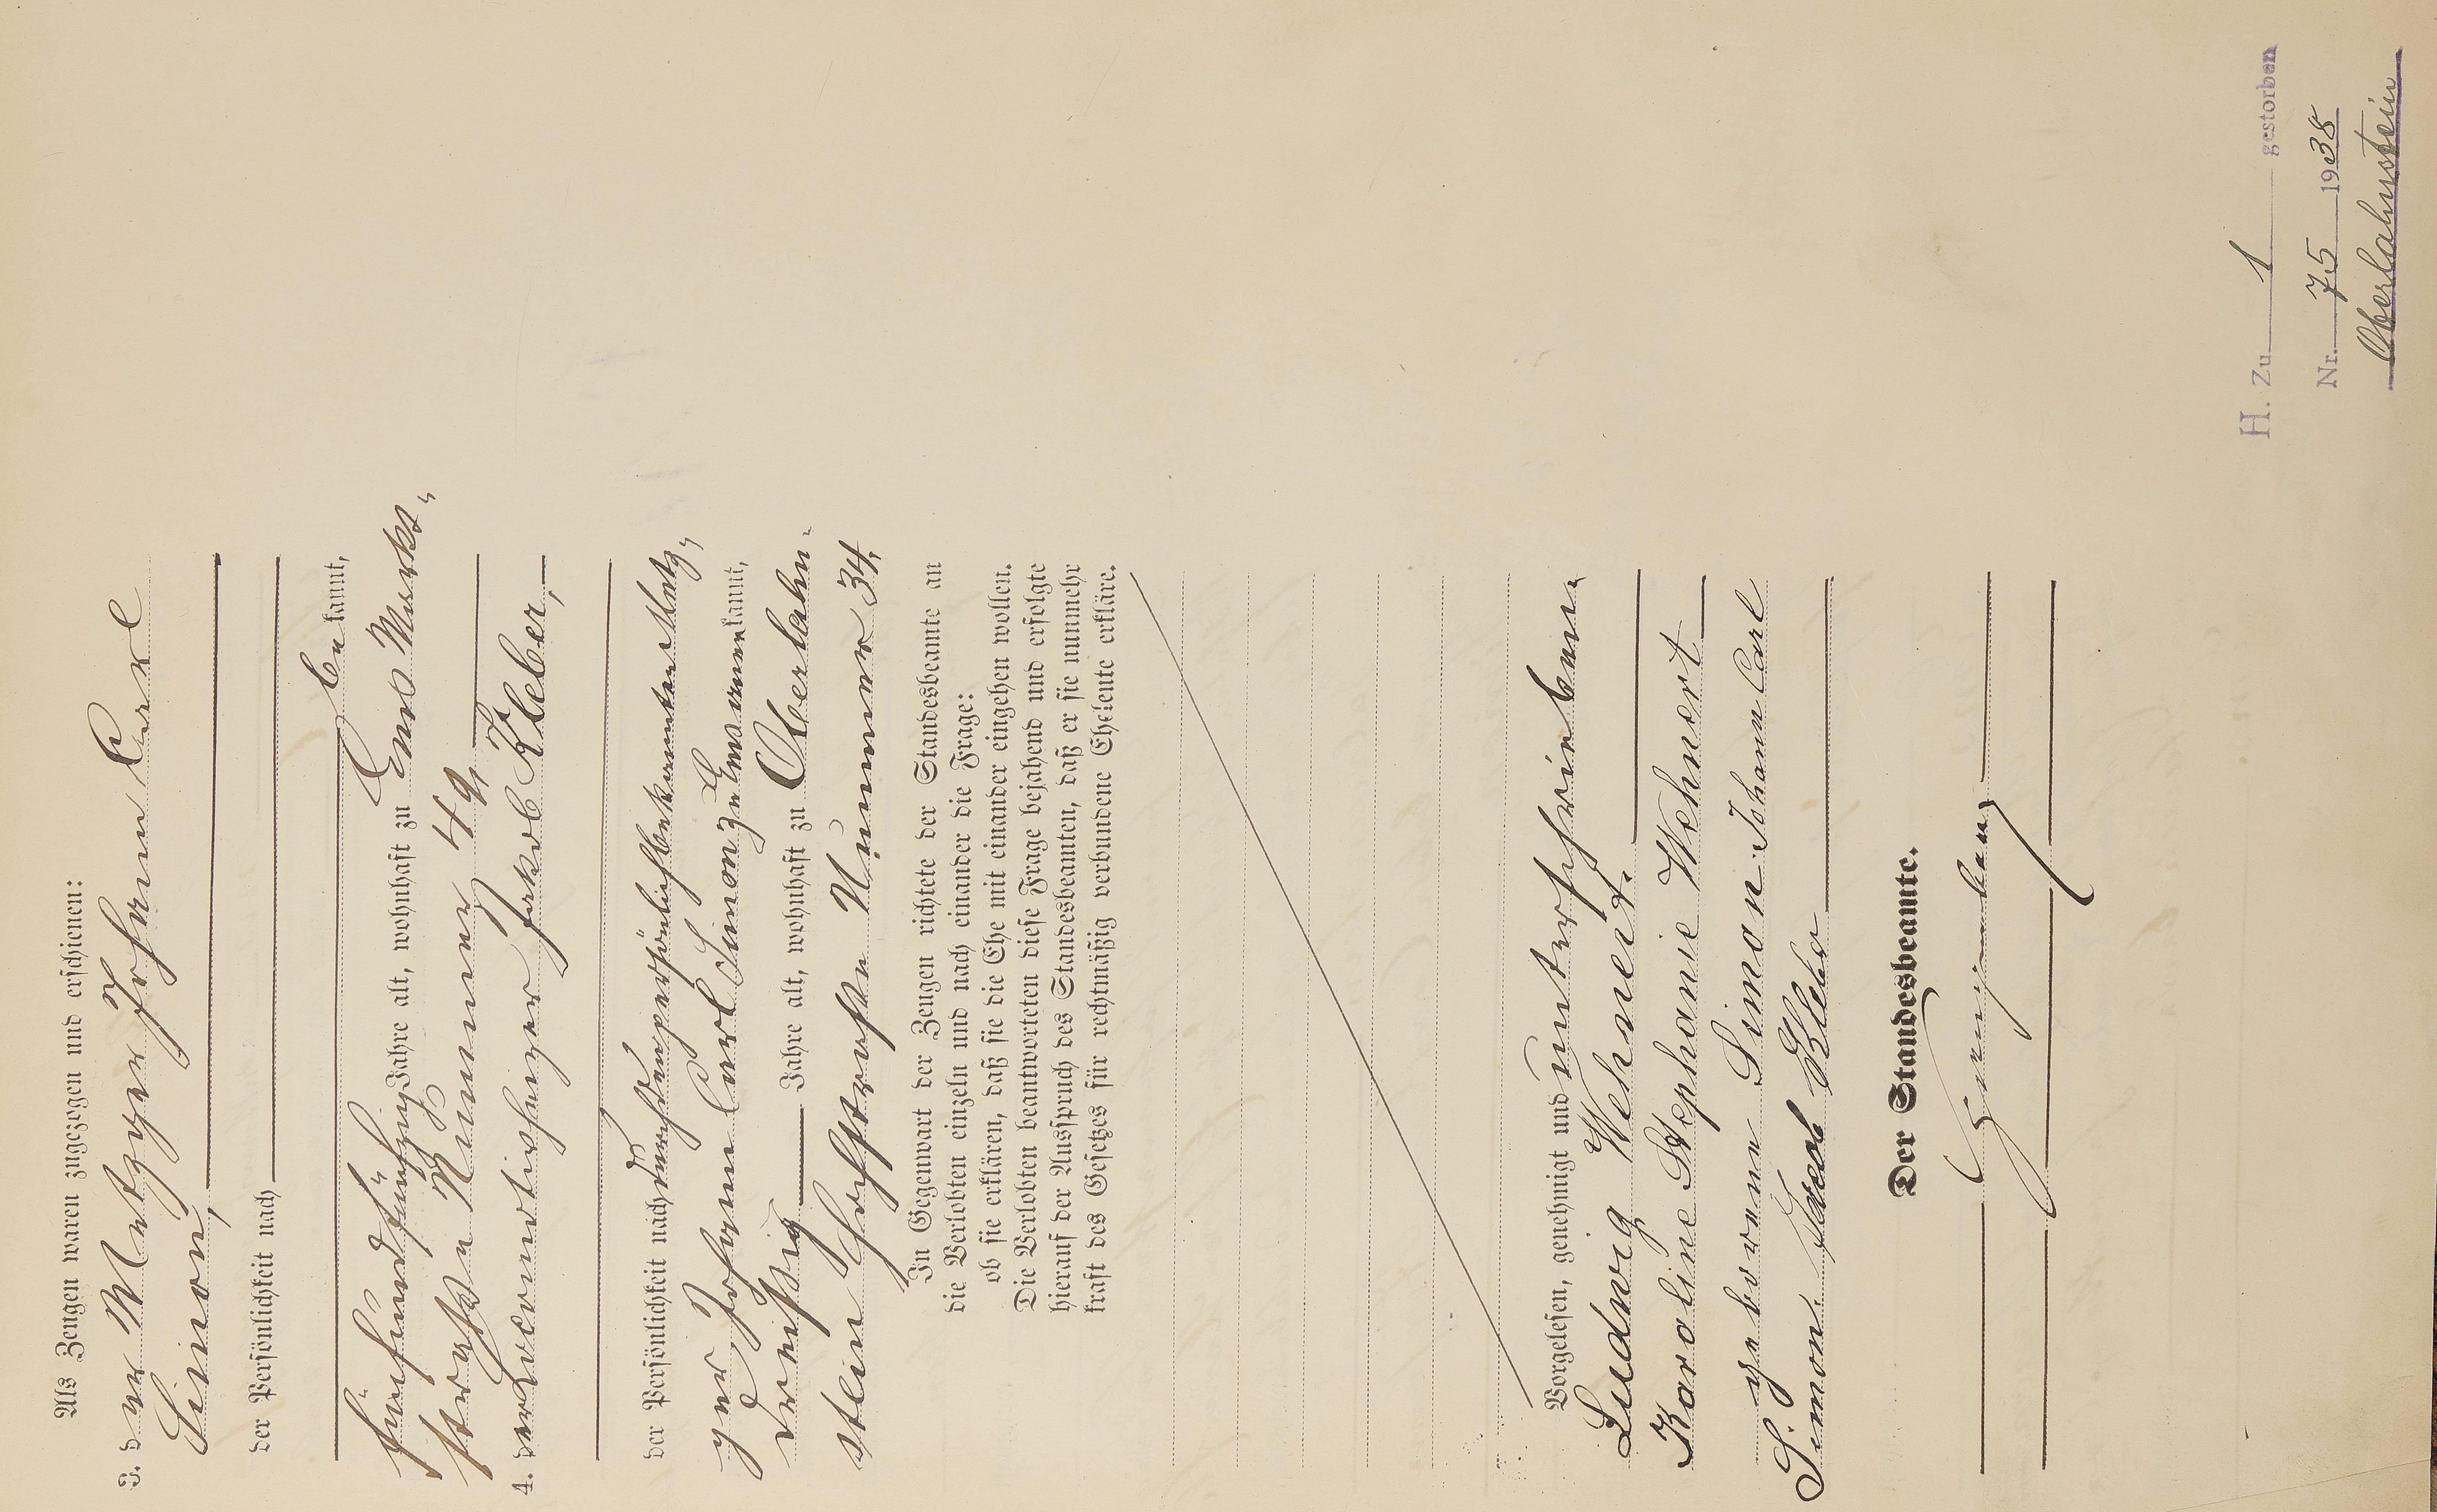 Als Zeugen waren zugezogen und erschienen:
3. der Metzger Johann Carl
Simon,
der Persönlichkeit nach
bekannt,
fünfundfünfzig Jahre alt, wohnhaft zu Ems Markt-
straße Nummer 49,
4. der Locomotivheizer Jakob Kleber,
der Persönlichkeit nach durch den persönlich bekannten Metz-
ger Johann Carl Simon zu Ems anerkannt,
dreißig Jahre alt, wohnhaft zu Oberlahn-
stein Hochstraße Nummer 34.
In Gegenwart der Zeugen richtete der Standesbeamte an
die Verlobten einzeln und nach einander die Frage:
ob sie erklären, daß sie die Ehe mit einander eingehen wollen.
Die Verlobten beantworteten diese Frage bejahend und erfolgte
hierauf der Ausspruch des Standesbeamten, daß er sie nunmehr
kraft des Gesetzes für rechtmäßig verbundene Eheleute erkläre.
Vorgelesen, genehmigt und unterschrieben:
Ludwig Wehnert.
Karoline Stephanie Wehnert
geborene Simon. Johann Carl
Simon. Jacob Kleber
Der Standesbeamte.
H. Zu 1 gestorben
Nr. 75 1938
Oberlahnstein